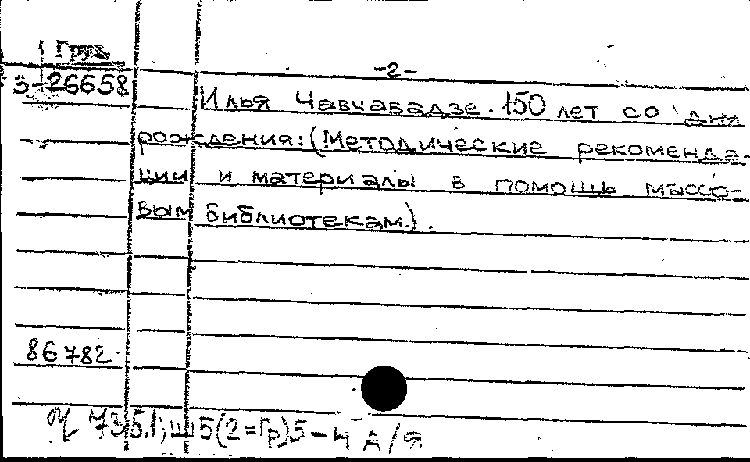 Груз
-2-
3-26658
Илья Чавчавадзе. 150 лет со дня
рождения: (Методические рекоменда-
ции и материалы в помощь массо-
вым библиотекам).
86782
Ч 735.1; Ш5(2=Гр)5-4 д/я